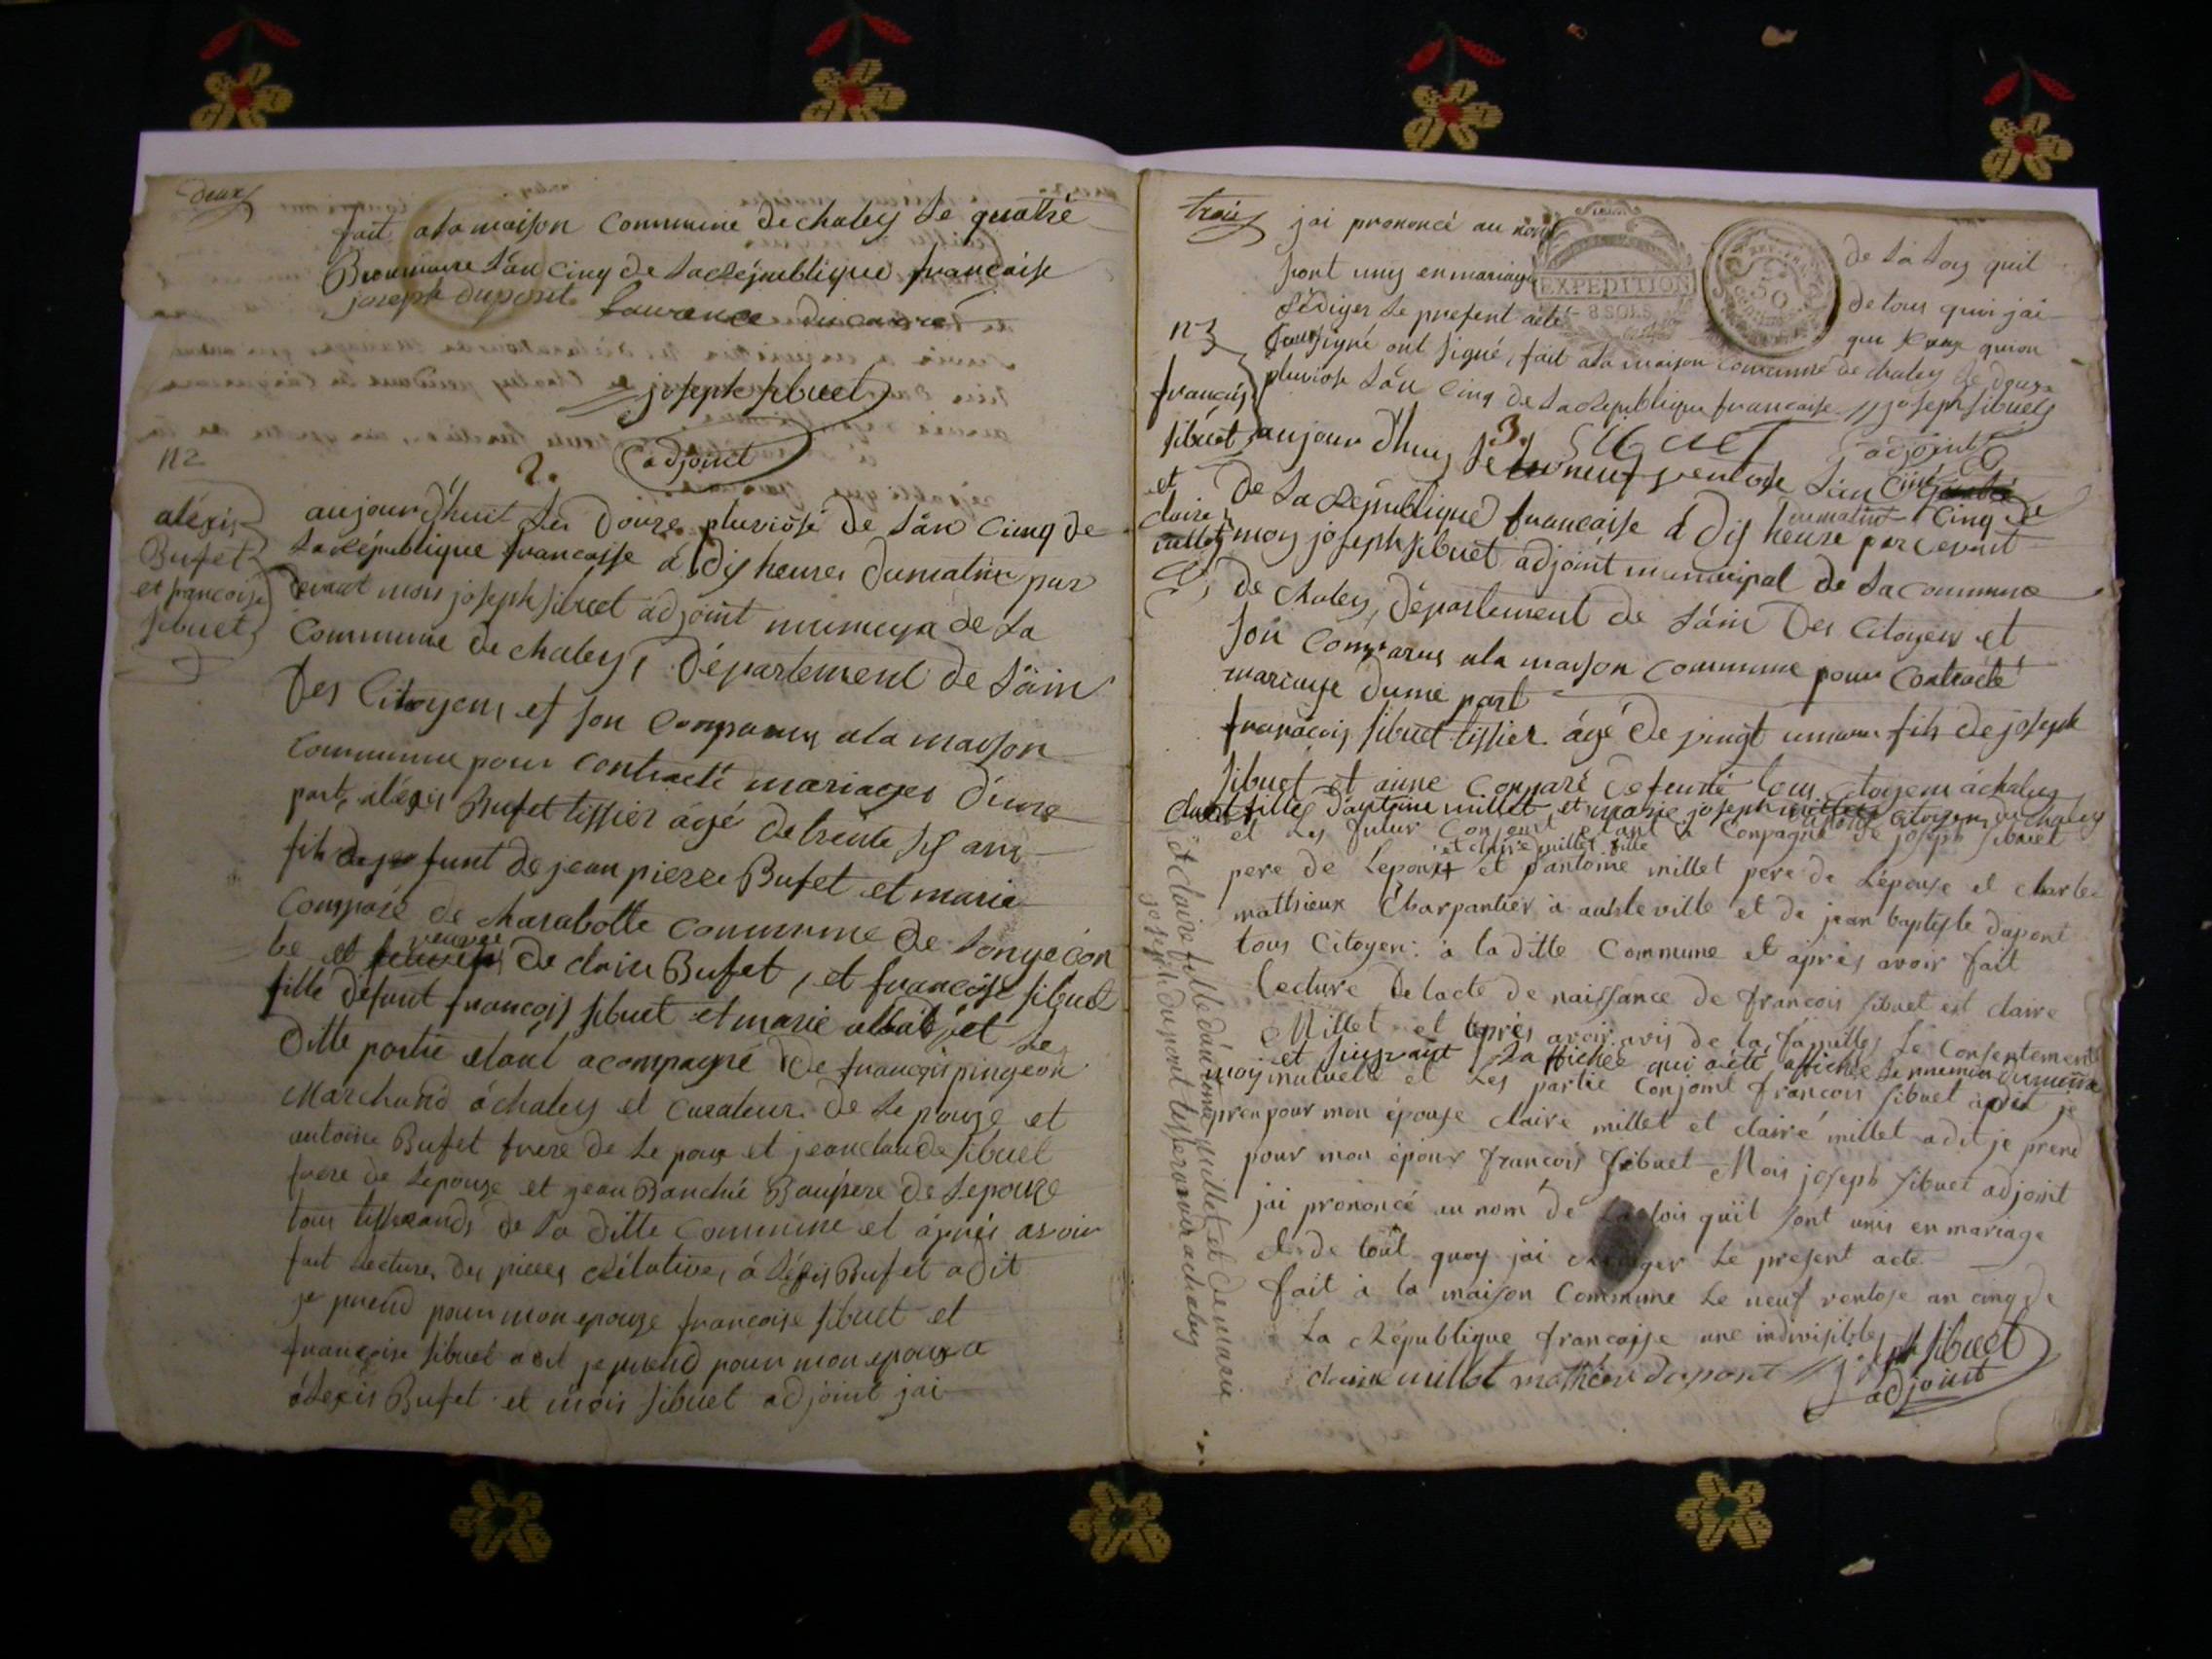 deux
fait ala maison Commune de chaley Le quatre
Brummaire L'an Cinq de La République francaise
joseph dupont Laurence ducarre
joseph sibuet
adjoint
n 2
2.
aléxis
Bufet
et francoise
sibuet
aujourd'huit Les douze pluviôse de L'an Cinq de
La République francaisse à dix heures du matin par
devant mois joseph sibuet adjoint municipa de La
Commune de chaley, département de L'ain
Des Citoyens et son Comparus ala maison
Commune pour contracté mariages d'une
part, aléxis Bufet tissier agé de trente six ans
fils de funt de jean pierre Bufet et marie
Composé de charabotte Commune de Longecon
be et veuve de claire Bufet, et francoise sibuet
fille défunt francois sibuet et marie et Le
Ditte partie etant acompagné de francois pingeon
Marchand à chaley et Curateur de Le pouze et
antoine Bufet frere de Le poux et jean claude sibuet
frere de Lepouze et jean Banché Baupere de Lepouze
tous tisserands de La ditte Commune et áprés avoir
fait Lecture des pieces rélatives à Léxis Bufet a dit
je prend pour mon epouze francoise sibuet et
françoise sibuet a dit je prend pour mon epouxe
aléxis Bufet et mois sibuet adjoint jai
trois
jai prononcé au nom de La Loy quil
sont unis en mariage de tous quoi jai
EXPEDITION
8 SOLS
50
rédiger Le present acte que Ceux qui on
signé ont signé, fait ala maison Commune de chaley Le douze
pluviose L'an Cinq de La République francaise // joseph sibuet
adjoint
n 3
francois
sibuet
et
claire
millet
3.
aujourd'huy Le neuf ventose L'an Cinq
De La République francaise à dix heure du matin par devant
moy joseph sibuet adjoint municipal de La Commune
de chaley, département de L'ain Des Citoyens et
son Comparus ala maison Commune pour Contracté
mariage d'une part
francois sibuet tissier agé de vingt un ans fils de joseph
sibuet et anne Comparé defunte tous citoyens à chaley
fille d'antoine millet et marie joseph citoyens de chaley
et Les futur Conjoint etant a Compagné de joseph sibuet
et claire millet fille
pere de Lepoux et d'antoine millet pere de Lépouse et charle
matthieux Charpantier à auhteville et de jean baptiste dupont
tous Citoyen à la ditte Commune et après avoir fait
Lecture de lacte de naissance de francois sibuet est claire
Millet et après avoir avis de la famille, Le Consentement
et suivant La ffichée qui a été affichée Le premier
mutuelle et Les partie Conjoint francois sibuet a dit je
pren pour mon épouze claire millet et clairé millet a dit je prend
pour mon époux francois sibuet Mois joseph sibuet adjoint
jai prononcé au nom de La lois quil sont unis en mariage
et de tout quoy jai rediger Le present acte
fait à la maison Commune Le neuf ventose an cinq de
La République francaisse une indivisible
joseph sibuet
adjoint
claire millet mathieu Dupont
et claire fille d'antoine millet et de marie
joseph dupont tisserand a chaley